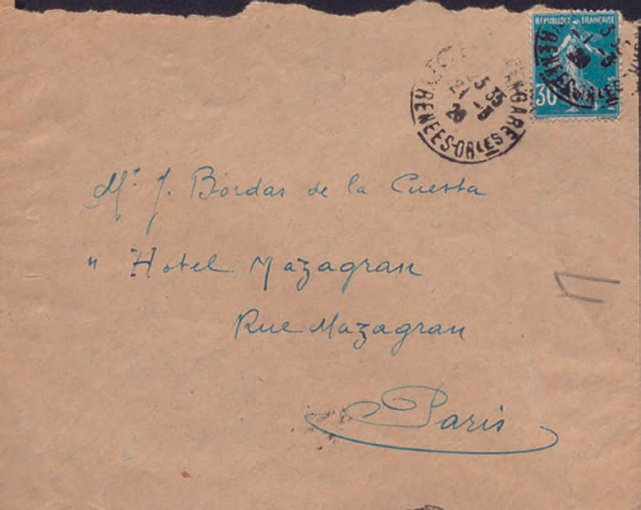 REPUBLIQUE FRANÇAISE
30
5 35
26
PYRENEES-ORLES
Mr. J. Bordas de la Cuesta
" Hotel Mazagran
Rue Mazagran
Paris